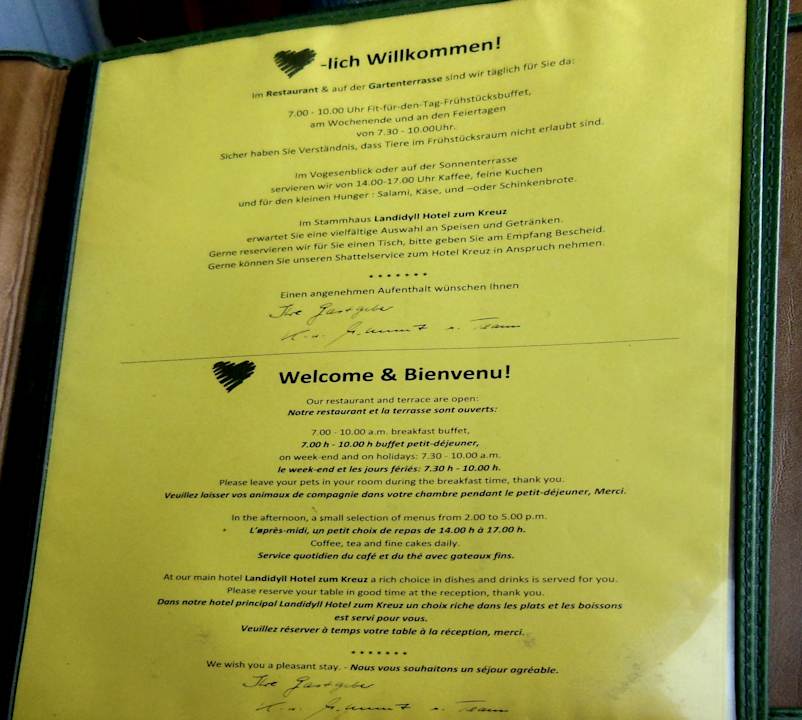 -lich Willkommen!
Im Restaurant & auf der Gartenterrasse sind wir täglich für Sie da:
7.00 - 10.00 Uhr Fit-für-den-Tag-Frühstücksbuffet,
am Wochenende und an den Feiertagen
von 7.30 - 10.00Uhr.
Sicher haben Sie Verständnis, dass Tiere im Frühstücksraum nicht erlaubt sind.
Im Vogesenblick oder auf der Sonnenterrasse
servieren wir von 14.00-17.00 Uhr Kaffee, feine Kuchen
und für den kleinen Hunger : Salami, Käse, und –oder Schinkenbrote.
Im Stammhaus Landidyll Hotel zum Kreuz
erwartet Sie eine vielfältige Auswahl an Speisen und Getränken.
Gerne reservieren wir für Sie einen Tisch, bitte geben Sie am Empfang Bescheid.
Gerne können Sie unseren Shattelservice zum Hotel Kreuz in Anspruch nehmen.
* * * * * * *
Einen angenehmen Aufenthalt wünschen Ihnen
Ihre Gastgeber
u. Team
Welcome & Bienvenu!
Our restaurant and terrace are open:
Notre restaurant et la terrasse sont ouverts:
7.00 - 10.00 a.m. breakfast buffet,
7.00 h - 10.00 h buffet petit-déjeuner,
on week-end and on holidays: 7.30 - 10.00 a.m.
le week-end et les jours fériés: 7.30 h - 10.00 h.
Please leave your pets in your room during the breakfast time, thank you.
Veuillez laisser vos animaux de compagnie dans votre chambre pendant le petit-déjeuner, Merci.
In the afternoon, a small selection of menus from 2.00 to 5.00 p.m.
L'après-midi, un petit choix de repas de 14.00 h à 17.00 h.
Coffee, tea and fine cakes daily.
Service quotidien du café et du thé avec gateaux fins.
At our main hotel Landidyll Hotel zum Kreuz a rich choice in dishes and drinks is served for you.
Please reserve your table in good time at the reception, thank you.
Dans notre hotel principal Landidyll Hotel zum Kreuz un choix riche dans les plats et les boissons
est servi pour vous.
Veuillez réserver à temps votre table à la réception, merci.
* * * * * * *
We wish you a pleasant stay. - Nous vous souhaitons un séjour agréable.
Ihre Gastgeber
u. Team